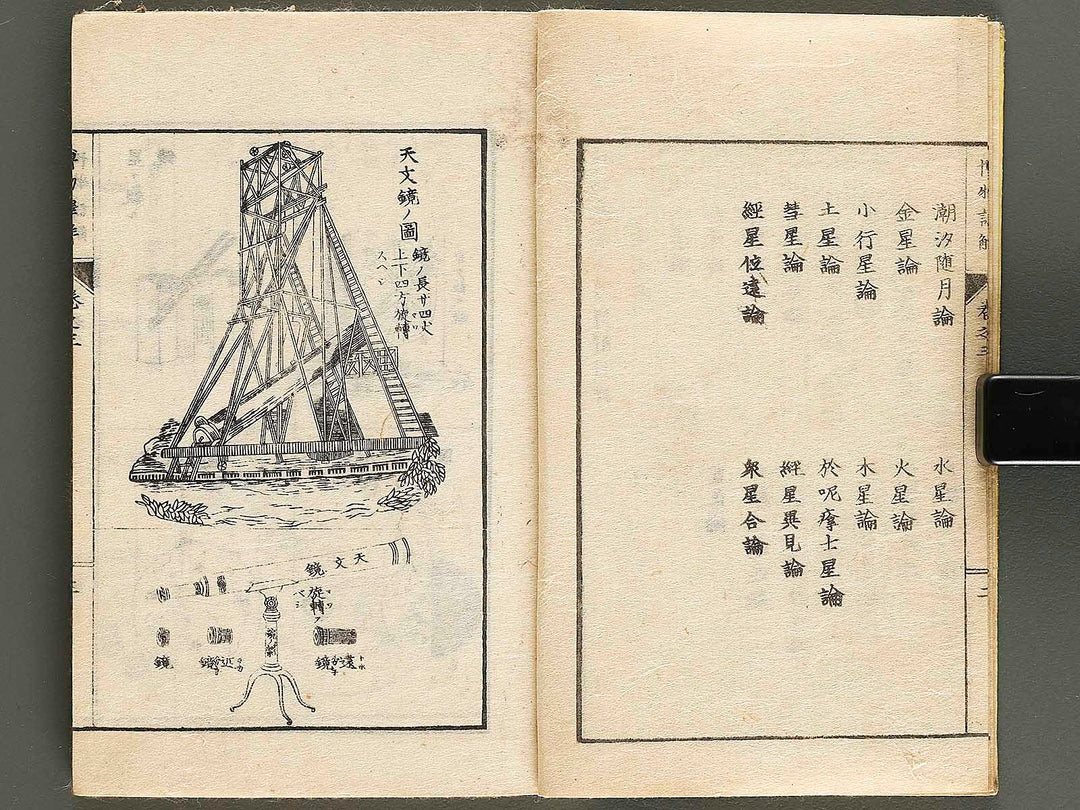 潮汐随月論
水星論
金星論
火星論
小行星論
木星論
土星論
於呢瘴士星論
彗星論
經星異見論
經星位遠論
衆星合論
卷之三
天文鏡ノ圖
鏡ノ長廿四丈
上下四方旋轉
スヘシ
天文鏡
旋轉
ベシ
遠
鏡
近
鏡
鏡